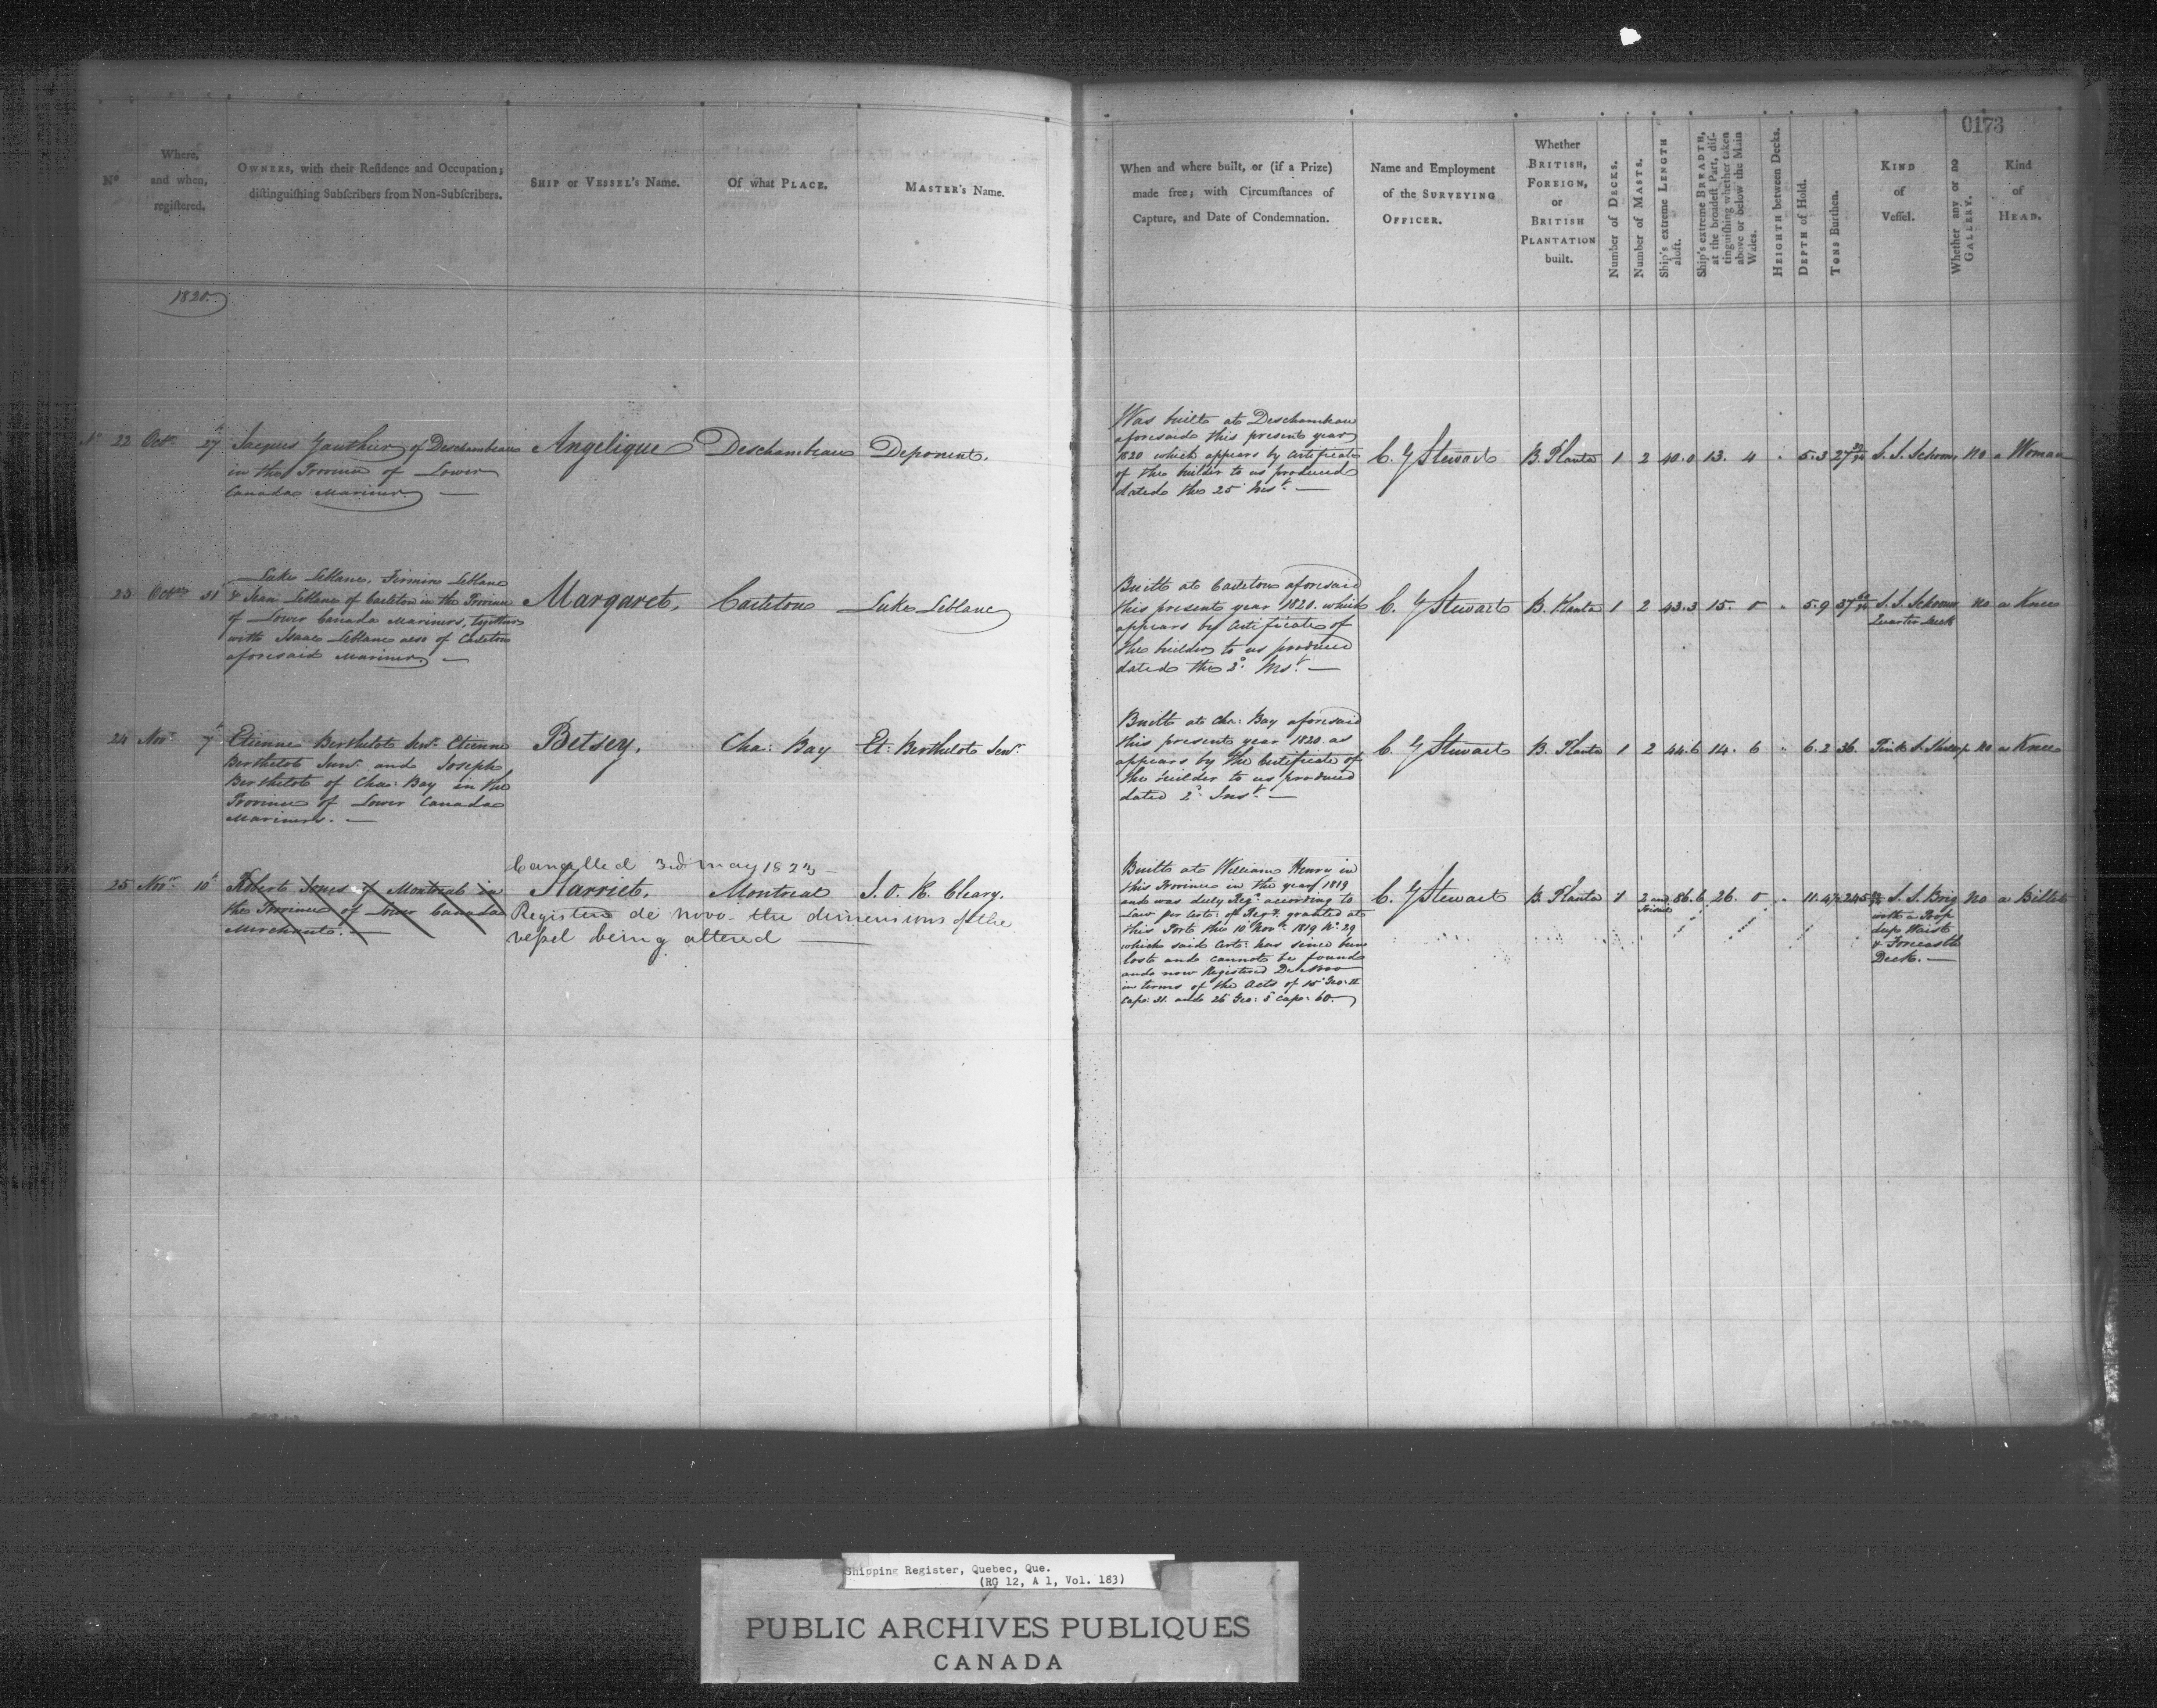 0173
Nº
Where,
and when,
regiſtered.
OWNERS, with their Reſidence and Occupation;
diſtinguiſhing Subſcribers from Non-Subſcribers.
SHIP or VESSEL's Name.
Of what PLACE.
MASTER's Name.
When and where built, or (if a Prize)
made free; with Circumſtances of
Capture, and Date of Condemnation.
Name and Employment
of the SURVEYING
OFFICER.
Whether
BRITISH,
FOREIGN,
or
BRITISH
PLANTATION
built.
Number of DECKS.
Number of MASTS.
Ship's extreme LENGTH
aloft.
Ship's extreme BREADTH,
at the broadeſt Part, diſ-
tinguiſhing whether taken
above or below the Main
Wales.
HEIGHTH between Decks.
DEPTH of Hold.
TONS Burthen.
KIND
of
Veſſel.
Whether any or no
GALLERY.
Kind
of
HEAD.
1820.
Nº 22 Octr 27t
Jacques Gauthier of Deschambeau
in the Province of Lower
Canada Mariner
Angelique
Deschambeau
Deponent.
Was built at Deschambeau
aforesaid this present year
1820 which appears by Certificate
of the builder to us produced
dated the 25 Inst. —
C. G Stewart
B. Planta 1 2 40.0 13. 4 5.3 27 S. S. Schoonr no a Woman
23 Octr 31t
Luke Leblanc, Firmin Leblanc
& Jean Leblanc of Carleton in the Province
of Lower Canada Mariners, together
with Isaac Leblanc also of Carleton
aforesaid Mariner —
Margaret,
Carleton
Luke Leblanc
Built at Carleton aforesaid
this present year 1820. which
appears by Certificate of
the builder to us produced
dated the 2d Inst. —
C. G Stewart
B. Planta 1 2 43.3 15. 0 5.9 37 S. S. Schoonr no a Knee
Quarter Deck
24 Novr 7t
Etienne Berthelot Senr. Etienne
Berthelot Junr and Joseph
Berthelot of Cha: Bay in the
Province of Lower Canada
Mariners. —
Betsey,
Cha: Bay
Et: Berthelot Senr.
Built at Cha: Bay aforesaid
this present year 1820. as
appears by the Certificate of
the builder to us produced
dated 2d Inst. —
C. G Stewart
B. Planta 1 2 44.6 14. 6 6.2 36. Pink S. no a Knee
25 Novr 10t
Robert Jones of Montreal in
the Province of Lower Canada
Merchant. —
Cancelled 3rd May 1823 —
Harriet,
Montreal
J. O. K. Cleary.
Registered de novo – the dimensions of the
veſsel being altered —
Built at William Henry in
this Province in the year 1819
and was duly Regd. according to
Law per Certe. of Regy. granted at
this Port the 10 Novr. 1819 No. 29
which said Certe. has since been
lost and cannot be found
and now Registered De Novo
in terms of the Acts of 15 Geo: II
Cap: 31. and 26 Geo: 3d Cap: 60.
C. G Stewart
B. Planta 1 2 and 86.6 26. 0 11.4½ 245 S. S. Brig no a Billet
with a Poop
deep Waist
& Forecastle
Deck. —
Shipping Register, Quebec, Que.
(RG 12, A 1, Vol. 183)
PUBLIC ARCHIVES PUBLIQUES
CANADA